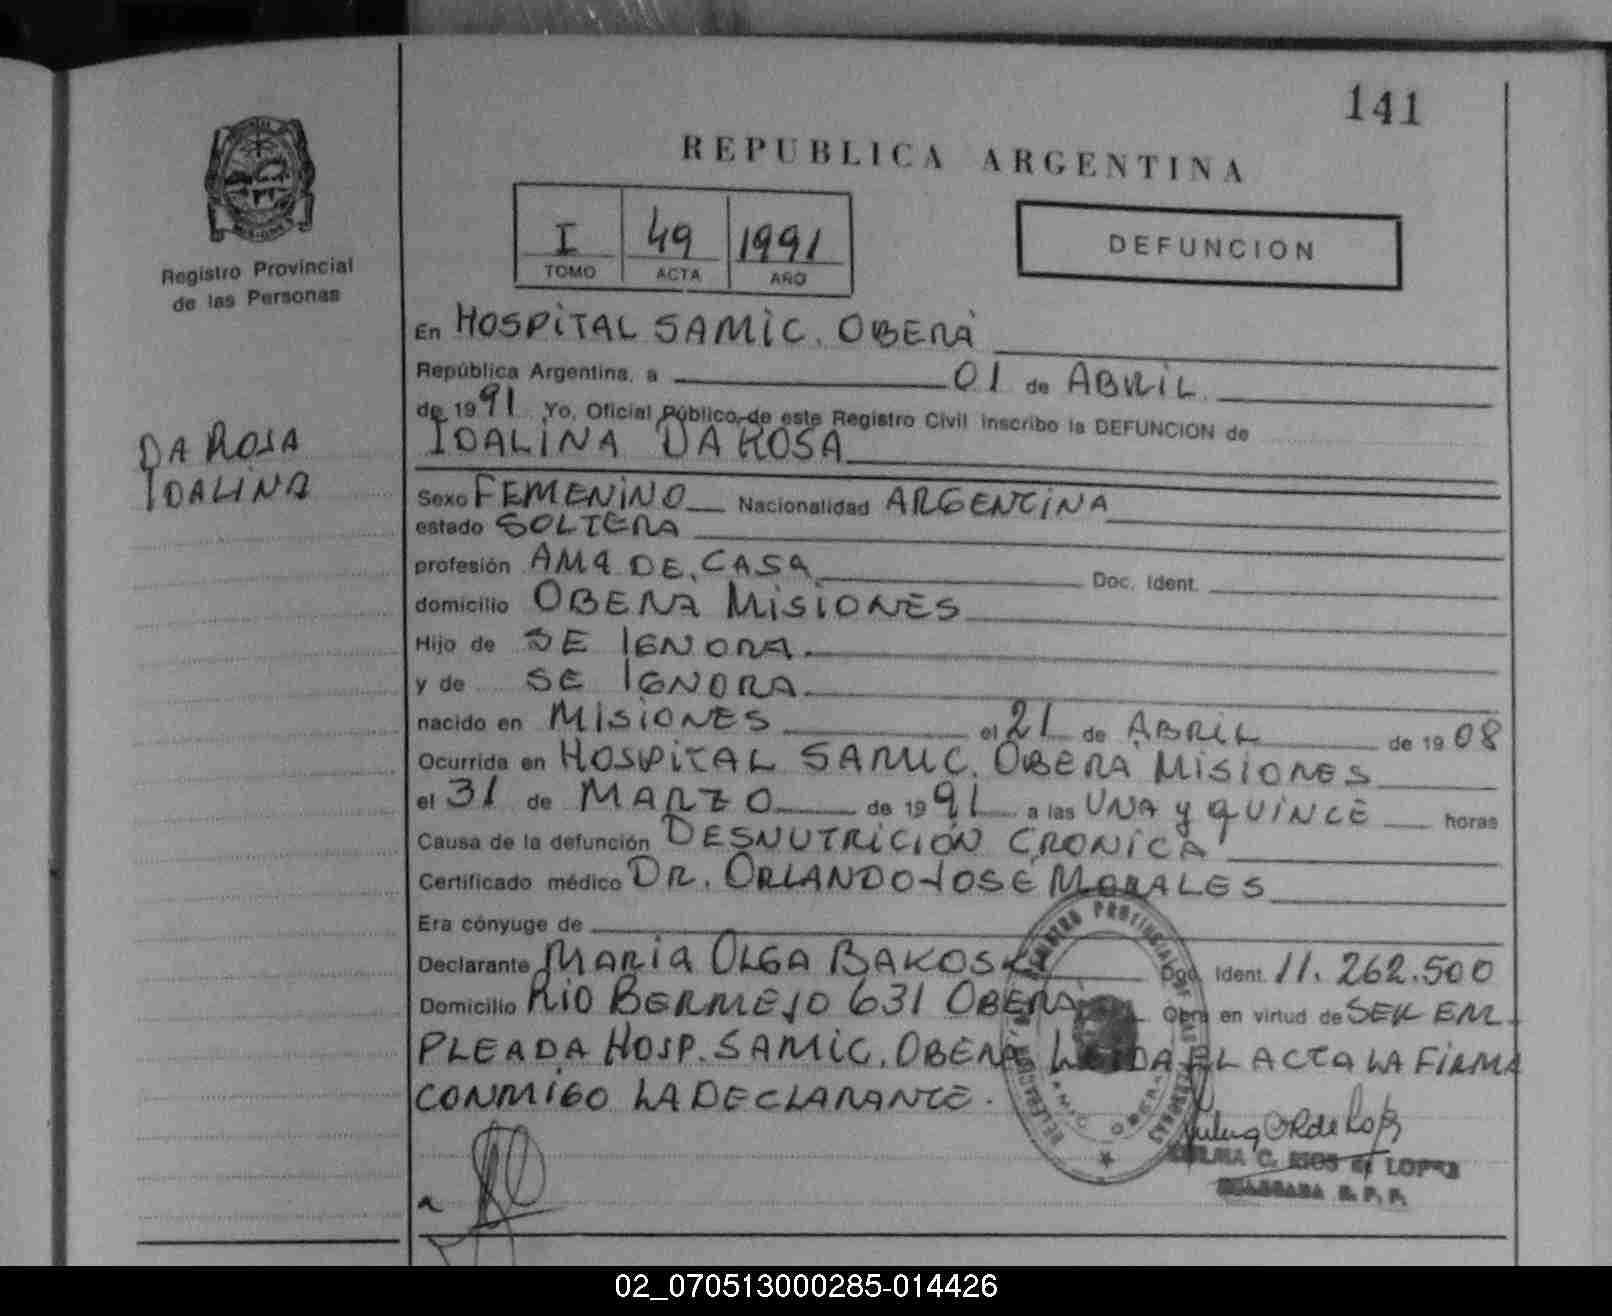 141
REPUBLICA ARGENTINA
I 49 1991
TOMO ACTA AÑO
DEFUNCION
Registro Provincial
de las Personas
DA ROSA
IDALINA
En HOSPITAL SAMIC. OBERÁ
República Argentina, a 01 de ABRIL
de 1991 Yo, Oficial Público de este Registro Civil inscribo la DEFUNCION de
IDALINA DA ROSA
Sexo FEMENINO Nacionalidad ARGENTINA
estado SOLTERA
profesión AMA DE CASA Doc. Ident.
domicilio OBERA MISIONES
Hijo de SE IGNORA
y de SE IGNORA
nacido en MISIONES el 21 de ABRIL de 1908
Ocurrida en HOSPITAL SAMIC. OBERA MISIONES
el 31 de MARZO de 1991 a las UNA y QUINCE horas
Causa de la defunción DESNUTRICIÓN CRONICA
Certificado médico DR. ORLANDO JOSE MORALES
Era cónyuge de
Declarante MARIA OLGA BAKOSKI Doc. Ident. 11.262.500
Domicilio RIO BERMEJO 631 OBERÁ Obra en virtud de SER EM
PLEADA HOSP. SAMIC. OBERA LEIDA EL ACTA LA FIRMA
CONMIGO LA DECLARANTE.
REGISTRO PROVINCIAL DE LAS PERSONAS
SAMIC OBERA
C. RIOS de LOPEZ
DELEGADA R. P. P.
02_070513000285-014426